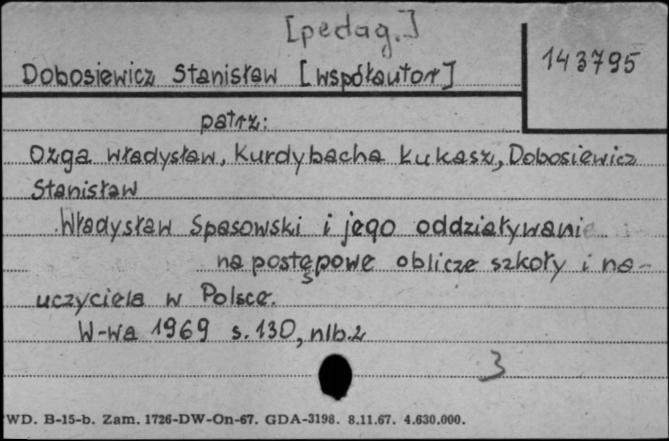 [pedag.]
Dobosiewicz Stanisław [współautor]
143795
patrz:
Ozga Władysław, Kurdybacha Łukasz, Dobosiewicz
Stanisław
Władysław Spasowski i jego oddziaływanie
na postępowe oblicze szkoły i na-
uczyciela w Polsce.
W-wa 1969 s. 130, nlb. 2
3
WD. B-15-b. Zam. 1726-DW-On-67. GDA-3198. 8.11.67. 4.630.000.